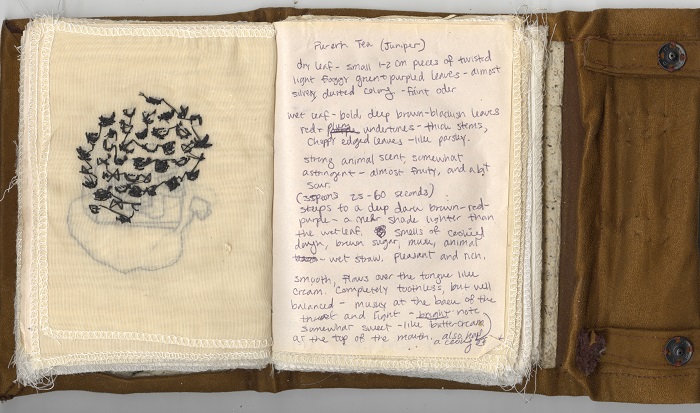 Pu-erh Tea (Juniper)
dry leaf - small 1-2 cm pieces of twisted
light foggy green + purpled leaves - almost
silvery dusted coloring. - faint oder
wet leaf - bold, deep brown-blackish leaves
red + undertones - thick stems,
choppy edged leaves - like parsley.
strong animal scent, somewhat
astringent - almost fruity, and a bit
sour.
25-60 seconds)
steeps to a deep dark brown-red-
purple - a shade lighter than
the wet leaf. smells of cooked
dough, brown sugar, musk, animal
- wet straw. pleasant and rich.
smooth, flows over the tongue like
cream. completely toothless, but well
balanced - musky at the back of the
throat and light - bright note
somewhat sweet - like butter-cream
at the top of the mouth. also
a